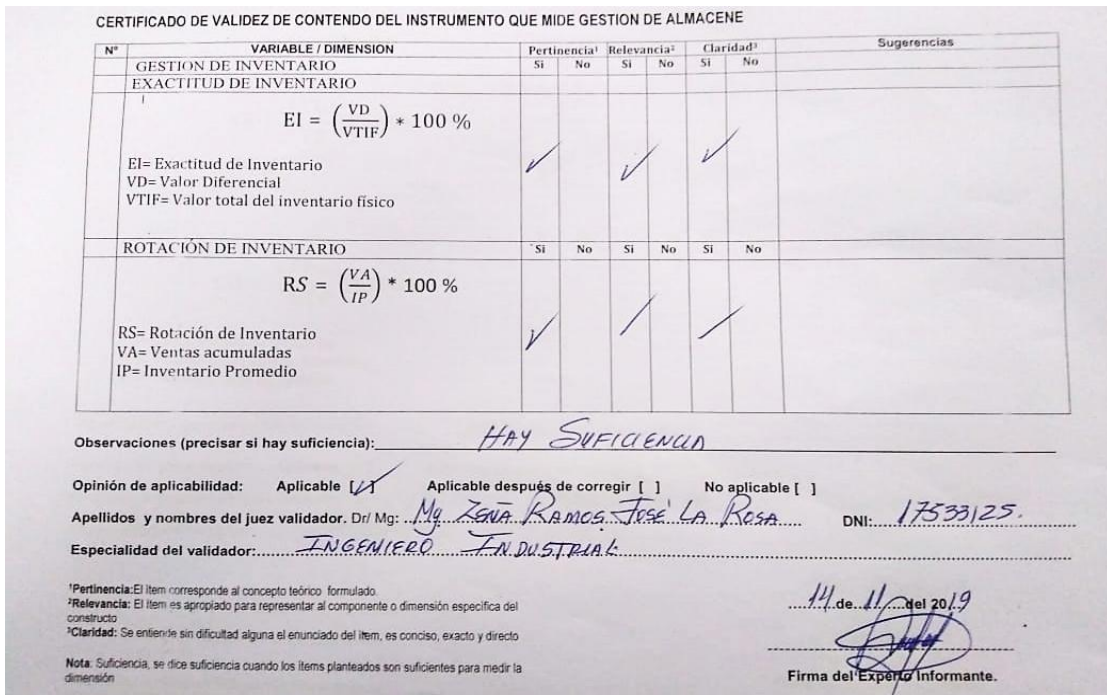 CERTIFICADO DE VALIDEZ DE CONTENDO DEL INSTRUMENTO QUE MIDE GESTION DE ALMACENE
N° VARIABLE / DIMENSION Pertinencia¹ Relevancia² Claridad³ Sugerencias
GESTION DE INVENTARIO Si No Si No Si No
EXACTITUD DE INVENTARIO
EI = (VD/VTIF) * 100 %
EI= Exactitud de Inventario
VD= Valor Diferencial
VTIF= Valor total del inventario físico
ROTACIÓN DE INVENTARIO Si No Si No Si No
RS = (VA/IP) * 100 %
RS= Rotación de Inventario
VA= Ventas acumuladas
IP= Inventario Promedio
Observaciones (precisar si hay suficiencia): HAY SUFICIENCIA
Opinión de aplicabilidad: Aplicable [✓] Aplicable después de corregir [ ] No aplicable [ ]
Apellidos y nombres del juez validador. Dr/ Mg: Mg ZEÑA RAMOS JOSÉ LA ROSA DNI: 17533125.
Especialidad del validador: INGENIERO INDUSTRIAL
¹Pertinencia:El item corresponde al concepto teórico formulado.
²Relevancia: El item es apropiado para representar al componente o dimensión especifica del
constructo
³Claridad: Se entiende sin dificultad alguna el enunciado del item, es conciso, exacto y directo
14 de 11 del 2019
Nota: Suficiencia, se dice suficiencia cuando los items planteados son suficientes para medir la
dimensión
Firma del Experto Informante.